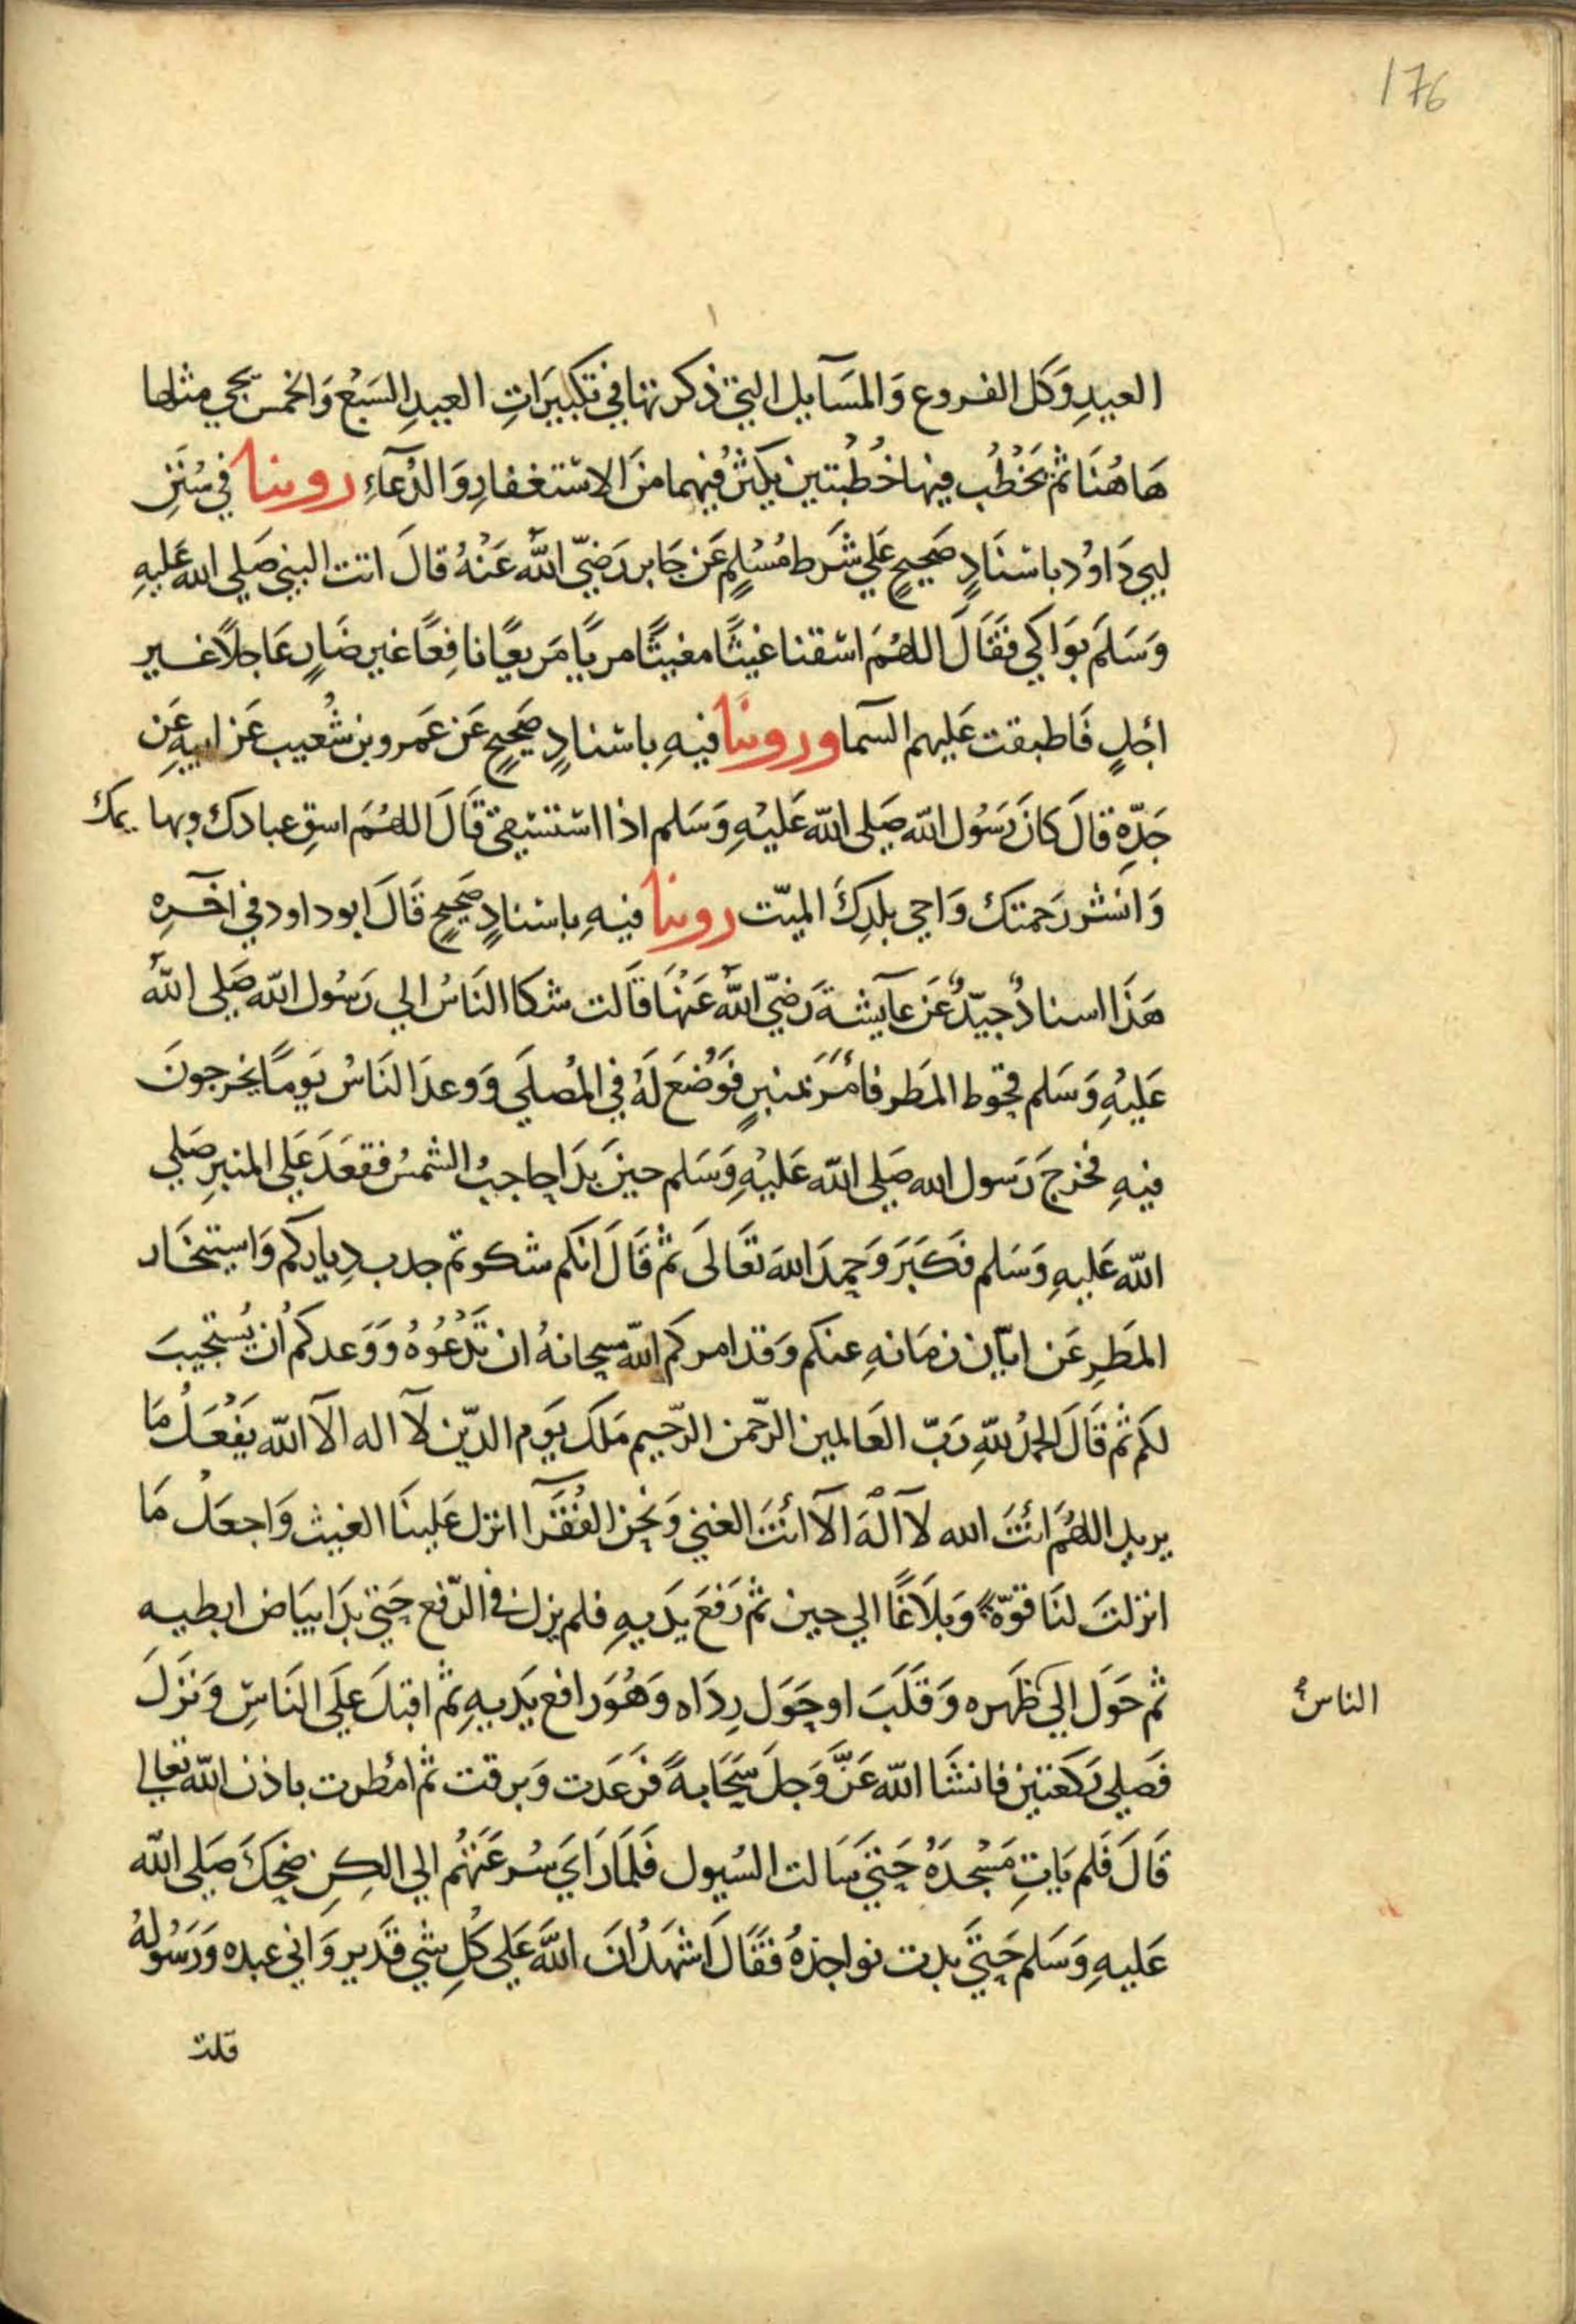 176
العيدِ وَكل الفروع وَالمسَآيل التي ذكرتها في تكبيَراتِ العيدِ السَبْع وَالخمس يجي مثلها
هَاهُنَا ثم يَخْطُب فيها خُطُبتين يكثرُ فيهما منَ الاستغفارِ وَالدُعآءِ روينا في سُنَنِ
ابي دَاوُد باسْنَادٍ صَحيحٍ عَلي شَرط مُسْلمٍ عَن جَابر رَضيّ اللّه عَنْهُ قالَ اتت النبي صَلي الله عَليهِ
وَسَلمَ بَوَاكي فَقَالَ اللهُمَ اسْقنا غيثًا مغيثًا مريًا مَريعًا نافِعًا غير ضَارٍ عَاجلاً غير
اجلٍ فَاطبقت عَليهم السَمآ وروينا فيهِ باسْنادٍ صَحيحٍ عَن عَمرو بن شُعيب عَن ابيهِ عَن
جَدّهِ قالَ كانَ رَسُول اللّه صَلي اللّه عَليْهِ وَسَلم اذا استسْقي قَالَ اللهُمَ اسقِ عبادك وبهايمك
وَانشر رَحمتك وَاحي بلدِكَ الميّت روينا فيهِ باسْنادٍ صَحيحٍ قَالَ ابو داود في اخرِه
هَذَا اسنادٌ جيّدٌ عَن عآيشةَ رَضيّ اللّه عَنْهَا قَالت شكا النَاسُ الي رَسُول اللّه صَلي اللّه
عَليْهِ وَسَلم قحُوط المَطر فأمَرَ بمنبرٍ فَوُضعَ لَهُ في المُصلَي وَوعدَ النَاسُ يَومًا يخرجونَ
فيهِ فخرجَ رَسول الله صَلي اللّه عَليْهِ وَسَلم حينَ بدَا حاجبُ الشمسُ فقعَدَ عَلي المنبرِ صَلي
اللّه عَليهِ وَسَلم فكَبَرَ وَحمِدَ اللهَ تَعَالَى ثم قَالَ انكم شكوتم جدب دِياركم وَاستيخَار
المَطِر عَن ابّان زمَانهِ عنكم وَقد امركم اللّه سبحانهُ ان تَدْعُوْهُ وَوَعدكم أن يُستجيبَ
لكم ثم قَالَ الحمدُ للّهِ رَبّ العَالمين الرّحمن الرّحيم مَلك يَوم الدّين لآ اله الآ اللّه يَفْعَلُ مَا
يريد اللهُمَ أنتَ الله لآ آلْهَ الآ أنتَ الغني وَنَحن الفُقَرآ انزل عَلينَا الغيث وَاجعَلْ مَا
انزلتَ لنَا قوّةً وَبلَاغًا الي حين ثم رَفَعَ يدَيهِ فلم يزل في الرّفع حَتي بدَا بيَاض ابطيه
ثم حَوَل الي ظَهره وَقَلَبَ او حَوَل رِدَاه وَهُوَ رافع يَديهِ ثم اقبلَ عَلَي النَاسِ وَنَزَلَ
الناس
فَصَلي رَكعَتين فانشَا اللّه عَزَّ وَجلَ سَحَابةً فَرَعَدت وَبرقت ثم امْطرت باذن اللّه تعالي
قَالَ فَلم يَاتِ مَسْجدَهُ حَتي سَالت السُيول فَلَمَا رَايَ سُرعَتَهُم الي الكِن ضحِكَ صَلي اللّه
عَليهِ وَسَلم حَتيَ بدت نواجذهُ فقَالَ اشهَدُ انَ اللّهَ عَلي كُلِ شي قَدير وَاني عبده وَرَسُولهُ
قلت